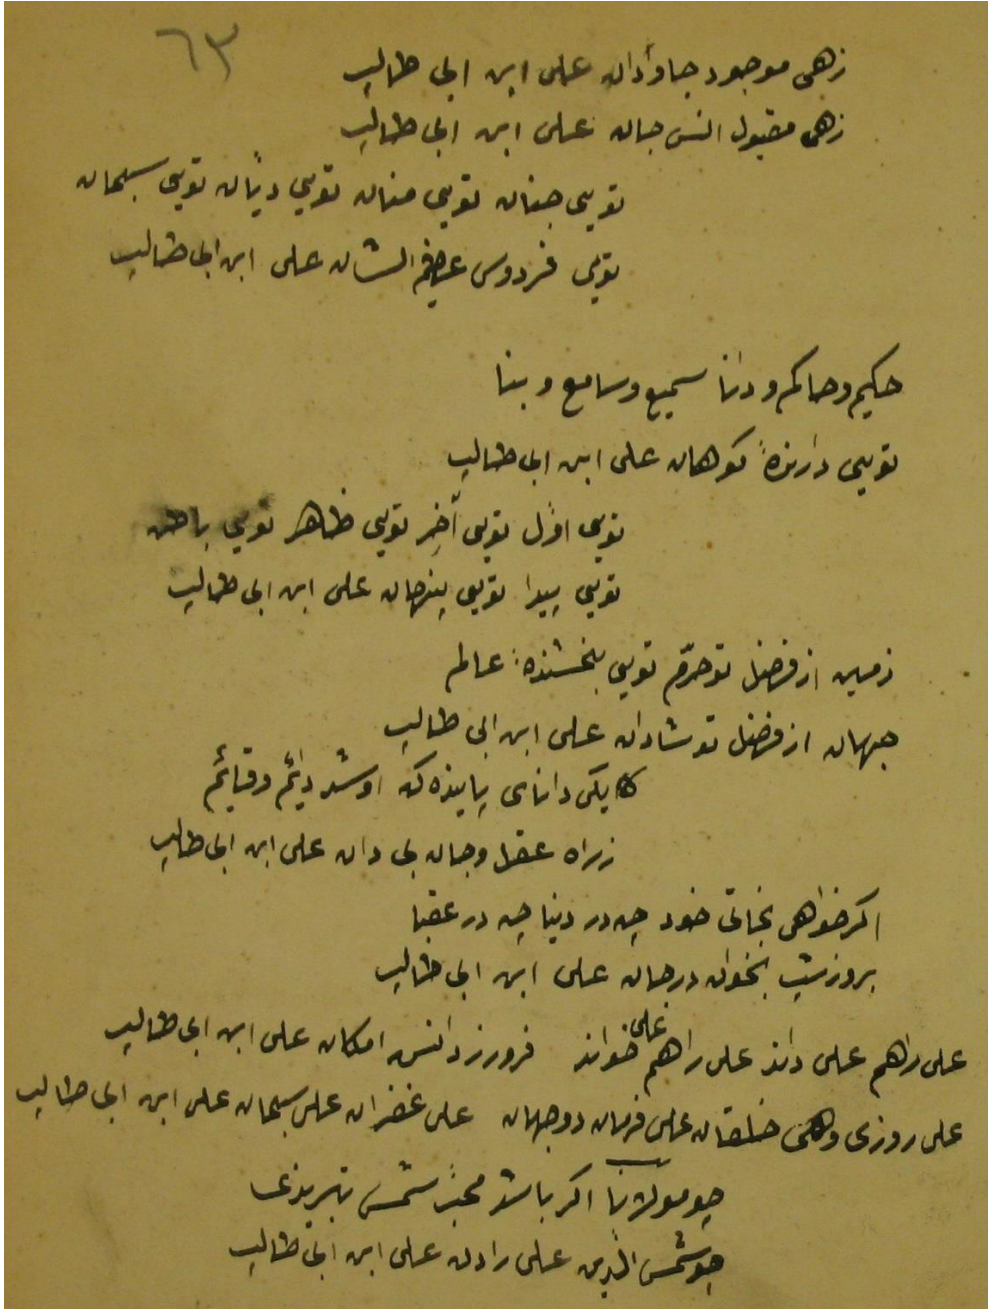 ٦٣
زهى موجود جاوأدان على ابن ابى طالب
زهى مقبول انس جان على ابن ابى طالب
تويى جنان تويى منان تويى ديّان تويى سبحان
تويى فردوس عظيم الشان على ابن ابى طالب
حكيم وحاكم و دانا سميع وسامع و بينا
تويى دارندهٔ كوهان على ابن ابى طالب
تويى اوّل تويى آخِر تويى ظاهر تويى باطن
تويى پيدا تويى پنهان على ابن ابى طالب
زمين از فضل تو خرّم تويى بخشندهٔ عالم
جهان از فضل تو شادان على ابن ابى طالب
يكى داناى پاينده كه او شد دائم وقائم
زراه عقل وجان بى دان على ابن ابى طالب
اكر خواهى نجاتى خود چه در دنيا چه در عقبا
بروز شب بخوان درجان على ابن ابى طالب
على راهم على داند على راهم على خواند فروزد انس امكان على ابن ابى طالب
على روزى خلقان على فرمان دو جهان على غفران على سبحان على ابن ابى طالب
چو مولانا اكر باشد مخبر شمس تبريزى
چو شمس الدين على رادان على ابن ابى طالب